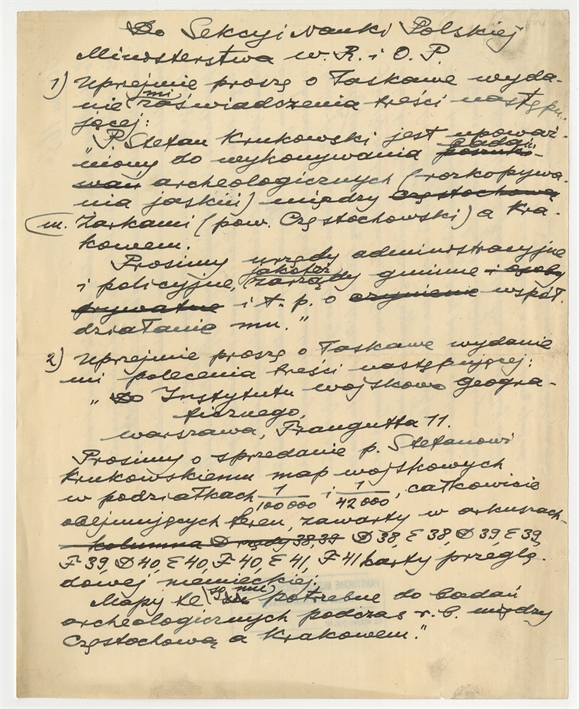 Do Sekcyi Nauki Polskiej
Ministerstwa W. R. i O. P.
1) Uprejmie proszę o łaskawe wyda-
nie mi zaświadczenia treści następu-
jącej:
"P. Stefan Krukowski jest upoważ-
niony do wykonywania poszuki- badań
wań archeologicznych (rozkopywa-
nia jaskiń) między Częstochową
m. Żarkami (pow. Częstochowski) a Kra-
kowem.
Prosimy urzędy administracyjne
i policyjne, jakoteż zarządy gminne i osoby
prywatne i t. p. o czynienie współ-
działanie mu."
2) Uprzejmie proszę o łaskawe wydanie
mi polecenia treści następującej:
" Do Instytutu wojskowo geogra-
ficznego,
Warszawa, Fraugutta 11.
Prosimy o sprzedanie p. Stefanowi
Krukowskiemu map wojskowych
w podziałkach 1/100000 i 1/42000, całkowicie
obejmujących teren, zawarty w arkuszach
kolumna D rzędy 38, 39 D 38, E 38, D 39, E 39,
F 39, D 40, E 40, F 40, E 41, F 41 karty przeglą-
dowej niemieckiej.
Mapy te są mu potrzebne do badań
archeologicznych podczas r. b. między
Częstochową a Krakowem."